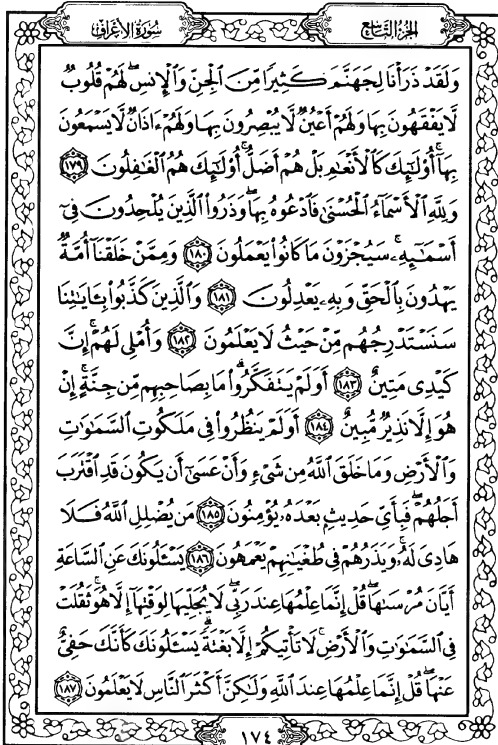 سُورَةُ الأَعْرَافِ
الجُزْءُ التَّاسِعُ
وَلَقَدْ ذَرَأْنَا لِجَهَنَّمَ كَثِيرًا مِّنَ ٱلْجِنِّ وَٱلْإِنسِ ۖ لَهُمْ قُلُوبٌ
لَّا يَفْقَهُونَ بِهَا وَلَهُمْ أَعْيُنٌ لَّا يُبْصِرُونَ بِهَا وَلَهُمْ ءَاذَانٌ لَّا يَسْمَعُونَ
بِهَآ ۚ أُو۟لَـٰٓئِكَ كَٱلْأَنْعَـٰمِ بَلْ هُمْ أَضَلُّ ۚ أُو۟لَـٰٓئِكَ هُمُ ٱلْغَـٰفِلُونَ ١٧٩
وَلِلَّهِ ٱلْأَسْمَآءُ ٱلْحُسْنَىٰ فَٱدْعُوهُ بِهَا ۖ وَذَرُوا۟ ٱلَّذِينَ يُلْحِدُونَ فِىٓ
أَسْمَـٰٓئِهِۦ ۚ سَيُجْزَوْنَ مَا كَانُوا۟ يَعْمَلُونَ ١٨٠ وَمِمَّنْ خَلَقْنَآ أُمَّةٌ
يَهْدُونَ بِٱلْحَقِّ وَبِهِۦ يَعْدِلُونَ ١٨١ وَٱلَّذِينَ كَذَّبُوا۟ بِـَٔايَـٰتِنَا
سَنَسْتَدْرِجُهُم مِّنْ حَيْثُ لَا يَعْلَمُونَ ١٨٢ وَأُمْلِى لَهُمْ ۚ إِنَّ
كَيْدِى مَتِينٌ ١٨٣ أَوَلَمْ يَتَفَكَّرُوا۟ ۗ مَا بِصَاحِبِهِم مِّن جِنَّةٍ ۚ إِنْ
هُوَ إِلَّا نَذِيرٌ مُّبِينٌ ١٨٤ أَوَلَمْ يَنظُرُوا۟ فِى مَلَكُوتِ ٱلسَّمَـٰوَٰتِ
وَٱلْأَرْضِ وَمَا خَلَقَ ٱللَّهُ مِن شَىْءٍ وَأَنْ عَسَىٰٓ أَن يَكُونَ قَدِ ٱقْتَرَبَ
أَجَلُهُمْ ۖ فَبِأَىِّ حَدِيثٍۭ بَعْدَهُۥ يُؤْمِنُونَ ١٨٥ مَن يُضْلِلِ ٱللَّهُ فَلَا
هَادِىَ لَهُۥ ۚ وَيَذَرُهُمْ فِى طُغْيَـٰنِهِمْ يَعْمَهُونَ ١٨٦ يَسْـَٔلُونَكَ عَنِ ٱلسَّاعَةِ
أَيَّانَ مُرْسَىٰهَا ۖ قُلْ إِنَّمَا عِلْمُهَا عِندَ رَبِّى ۖ لَا يُجَلِّيهَا لِوَقْتِهَآ إِلَّا هُوَ ۚ ثَقُلَتْ
فِى ٱلسَّمَـٰوَٰتِ وَٱلْأَرْضِ ۚ لَا تَأْتِيكُمْ إِلَّا بَغْتَةً ۗ يَسْـَٔلُونَكَ كَأَنَّكَ حَفِىٌّ
عَنْهَا ۖ قُلْ إِنَّمَا عِلْمُهَا عِندَ ٱللَّهِ وَلَـٰكِنَّ أَكْثَرَ ٱلنَّاسِ لَا يَعْلَمُونَ ١٨٧
١٧٤